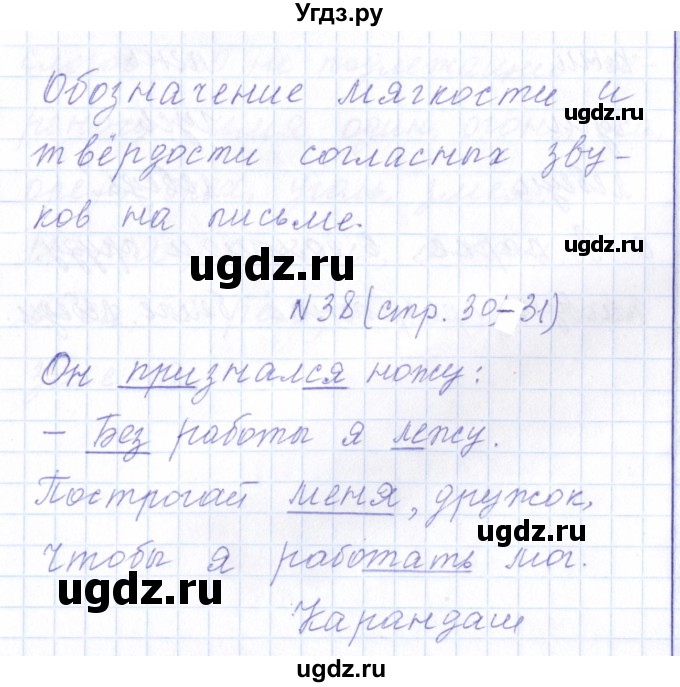 Угдз.ру
Обозначение мягкости и
твёрдости согласных зву-
ков на письме.
N 38 (стр. 30-31)
Он признался ножу:
- Без работы я лежу.
Построгай меня, дружок,
Чтобы я работать мог.
Карандаш
ugdz.ru
ugdz.ru
ugdz.ru
ugdz.ru
ugdz.ru
ugdz.ru
ugdz.ru
ugdz.ru